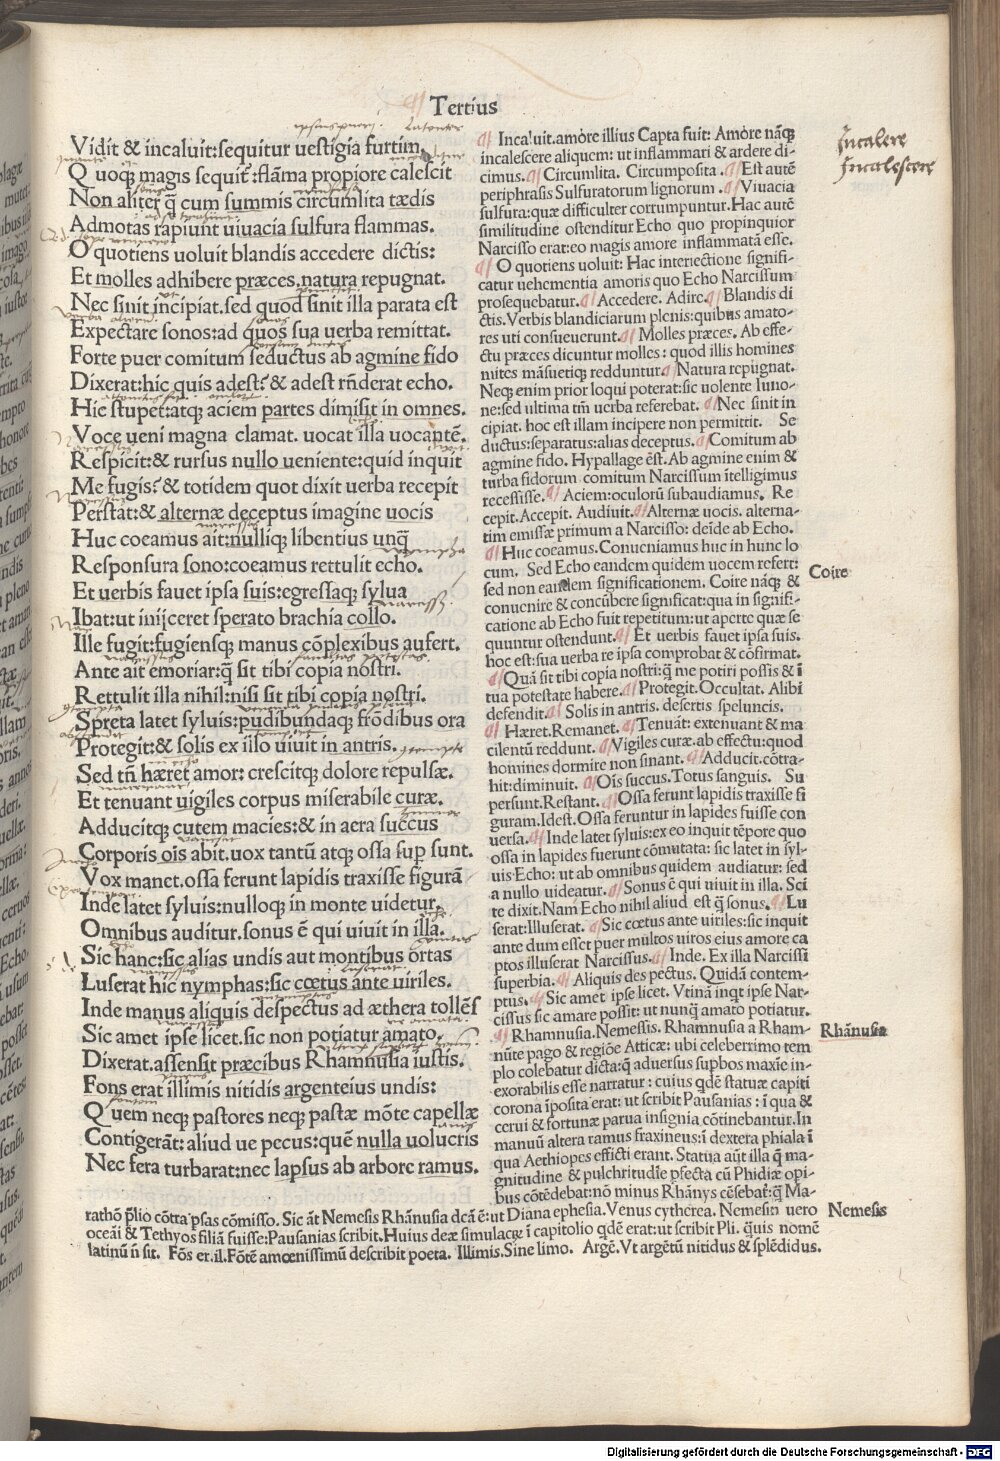 Tertius
Vidit & incaluit:sequitur uestigia furtim.
Q uoqꝫ magis sequit᷑:flãma propiore calescit
Non aliter q̃ cum summis circumlita tædis
Admotas rapiunt uiuacia sulfura flammas.
O quotiens uoluit blandis accedere dictis:
Et molles adhibere præces.natura repugnat.
Nec sinit incipiat.sed quod sinit illa parata est
Expectare sonos:ad quos sua uerba remittat.
Forte puer comitum seductus ab agmine fido
Dixerat:hic quis adest?& adest rñderat echo.
Hic stupet:atqꝫ aciem partes dimisit in omnes.
Voce ueni magna clamat. uocat illa uocantẽ.
Respicit:& rursus nullo ueniente:quid inquit
Me fugis?& totidem quot dixit uerba recepit
Perstat:& alternæ deceptus imagine uocis
Huc coeamus ait:nulliqꝫ libentius unq̃
Responsura sono:coeamus rettulit echo.
Et uerbis fauet ipsa suis:egressaqꝫ sylua
Ibat:ut iniiceret sperato brachia collo.
Ille fugit:fugiensqꝫ manus cõplexibus aufert.
Ante ait emoriar:q̃ sit tibi copia nostri.
Rettulit illa nihil:nisi sit tibi copia nostri.
Spreta latet syluis:pudibundaqꝫ frõdibus ora
Protegit:& solis ex illo uiuit in antris.
Sed tñ hæret amor: crescitqꝫ dolore repulsæ.
Et tenuant uigiles corpus miserabile curæ.
Adducitqꝫ cutem macies:& in aera succus
Corporis oĩs abit.uox tantũ atqꝫ ossa suꝑ sunt.
Vox manet.ossa ferunt lapidis traxisse figurã
Inde latet syluis:nulloqꝫ in monte uidetur.
Omnibus auditur.sonus ẽ qui uiuit in illa.
Sic hanc:sic alias undis aut montibus ortas
Luserat hic nymphas:sic cœtus ante uiriles.
Inde manus aliquis despectus ad æthera tollẽs
Sic amet ipse licet.sic non potiatur amato.
Dixerat.assensit præcibus Rhamnusia iustis.
Fons erat illimis nitidis argenteius undis:
Q uem neqꝫ pastores neqꝫ pastæ mõte capellæ
Contigerãt: aliud ue pecus:quẽ nulla uolucris
Nec fera turbarat:nec lapsus ab arbore ramus.
Inca!uit.amòre illius Capta fuit: Amòre nãqꝫ
incalescere aliquem: ut inflammari & ardere di-
cimus. Circumlita. Circumposita. Est autẽ
periphrasis Sulfuratorum lignorum. Viuacia
sulfura:quæ difficulter corrumpuntur.Hac autẽ
similitudine ostenditur Echo quo propinquior
Narcisso erat:eo magis amore inflammatã esse.
O quotiens uoluit: Hac interiectione signifi-
catur uehementia amoris quo Echo Narcissum
prosequebatur. Accedere. Adire. Blandis di
ctis.Verbis blandiciarum plenis:quibus amato-
res uti consueuerunt. Molles præces. Ab effe-
ctu præces dicuntur molles : quod illis homines
mites mãsuetiqꝫ redduntur. Natura repugnat.
Neqꝫ enim prior loqui poterat:sic uolente Iuno-
ne:sed ultima tñ uerba referebat. Nec sinit in
cipiat. hoc est illam incipere non permittit. Se
ductus:separatus:alias deceptus. Comitum ab
agmine fido. Hypallage ẽst.Ab agmine enim &
turba fidorum comitum Narcissum ĩtelligimus
recessisse. Aciem:oculorũ subaudiamus. Re
cepit.Accepit. Audiuit. Alternæ uocis. alterna-
tim emissæ primum a Narcisso: deĩde ab Echo.
Huc coeamus.Conueniamus huc in hunc lo
cum. Sed Echo eandem quidem uocem refert:
sed non eandem significationem. Coire nãqꝫ &
conuenire & concũbere significat:qua in signifi-
catione ab Echo fuit repetitum:ut aperte quæ se
quuntur ostendunt. Et uerbis fauet ipsa suis.
hoc est:sua uerba re ipsa comprobat & cõfirmat.
Quã sit tibi copia nostri:q̃ me potiri possis & ĩ
tua potestate habere. Protegit.Occultat. Alibi
defendit. Solis in antris. desertis speluncis.
Hæret.Remanet. Tenuãt: extenuant & ma
cilentũ reddunt. Vigiles curæ.ab effectu:quod
homines dormire non sinant. Adducit.cõtra-
hit:diminuit. Oĩs succus.Totus sanguis. Su
persunt.Restant. Ossa ferunt lapidis traxisse fi
guram.Idest.Ossa feruntur in lapides fuisse con
uersa. Inde latet syluis:ex eo inquit tẽpore quo
ossa in lapides fuerunt cõmutata: sic latet in syl-
uis Echo: ut ab omnibus quidem audiatur: sed
a nullo uideatur. Sonus ẽ qui uiuit in illa. Sci
te dixit.Nam Echo nihil aliud est q̃ sonus. Lu
serat:Illuserat. Sic cœtus ante uiriles:sic inquit
ante dum esset puer multos uiros eius amore ca
ptos illuserat Narcissus. Inde. Ex illa Narcissi
superbia. Aliquis despectus. Quidã contem-
ptus. Sic amet ipse licet. Vtinã inqt ipse Nar-
cissus sic amare possit: ut nunq̃ amato potiatur.
Rhamnusia.Nemessis. Rhamnusia a Rham-
nũte pago & regiõe Atticæ: ubi celeberrimo tem
plo colebatur dicta:q̃ aduersus supbos maxie in-
exorabilis esse narratur : cuius qdẽ statuæ capiti
corona ĩposita erat: ut scribit Pausanias : ĩ qua &
cerui & fortunæ parua insignia cõtinebantur.In
manuũ altera ramus fraxineus:ĩ dextera phiala ĩ
qua Aethiopes efficti erant. Statua aũt illa q̃ ma-
gnitudine & pulchritudĩe ꝑfecta cũ Phidiæ opi-
bus cõtẽdebat:nõ minus Rhãnys cẽsebat᷑:q̃ Ma-
rathõ ꝑlio cõtra psas cõmisso. Sic ãt Nemesis Rhãnusia dcã ẽ:ut Diana ephesia.Venus cytherea. Nemesin uero
oceãi & Tethyos filiã fuisse:Pausanias scribit.Huius deæ simulacrꝫ ĩ capitolio qdẽ erat:ut scribit Pli. q̃uis nomẽ
latinũ ñ sit. Fõs er.il.Fõtẽ amœnissimũ describit poeta. Illimis.Sine limo. Argẽ.Vt argẽtũ nitidus & splẽdidus.
Incalere
Incalescere
Coire
Rhãnusia
Nemesis
Digitalisierung gefördert durch die Deutsche Forschungsgemeinschaft - DFG